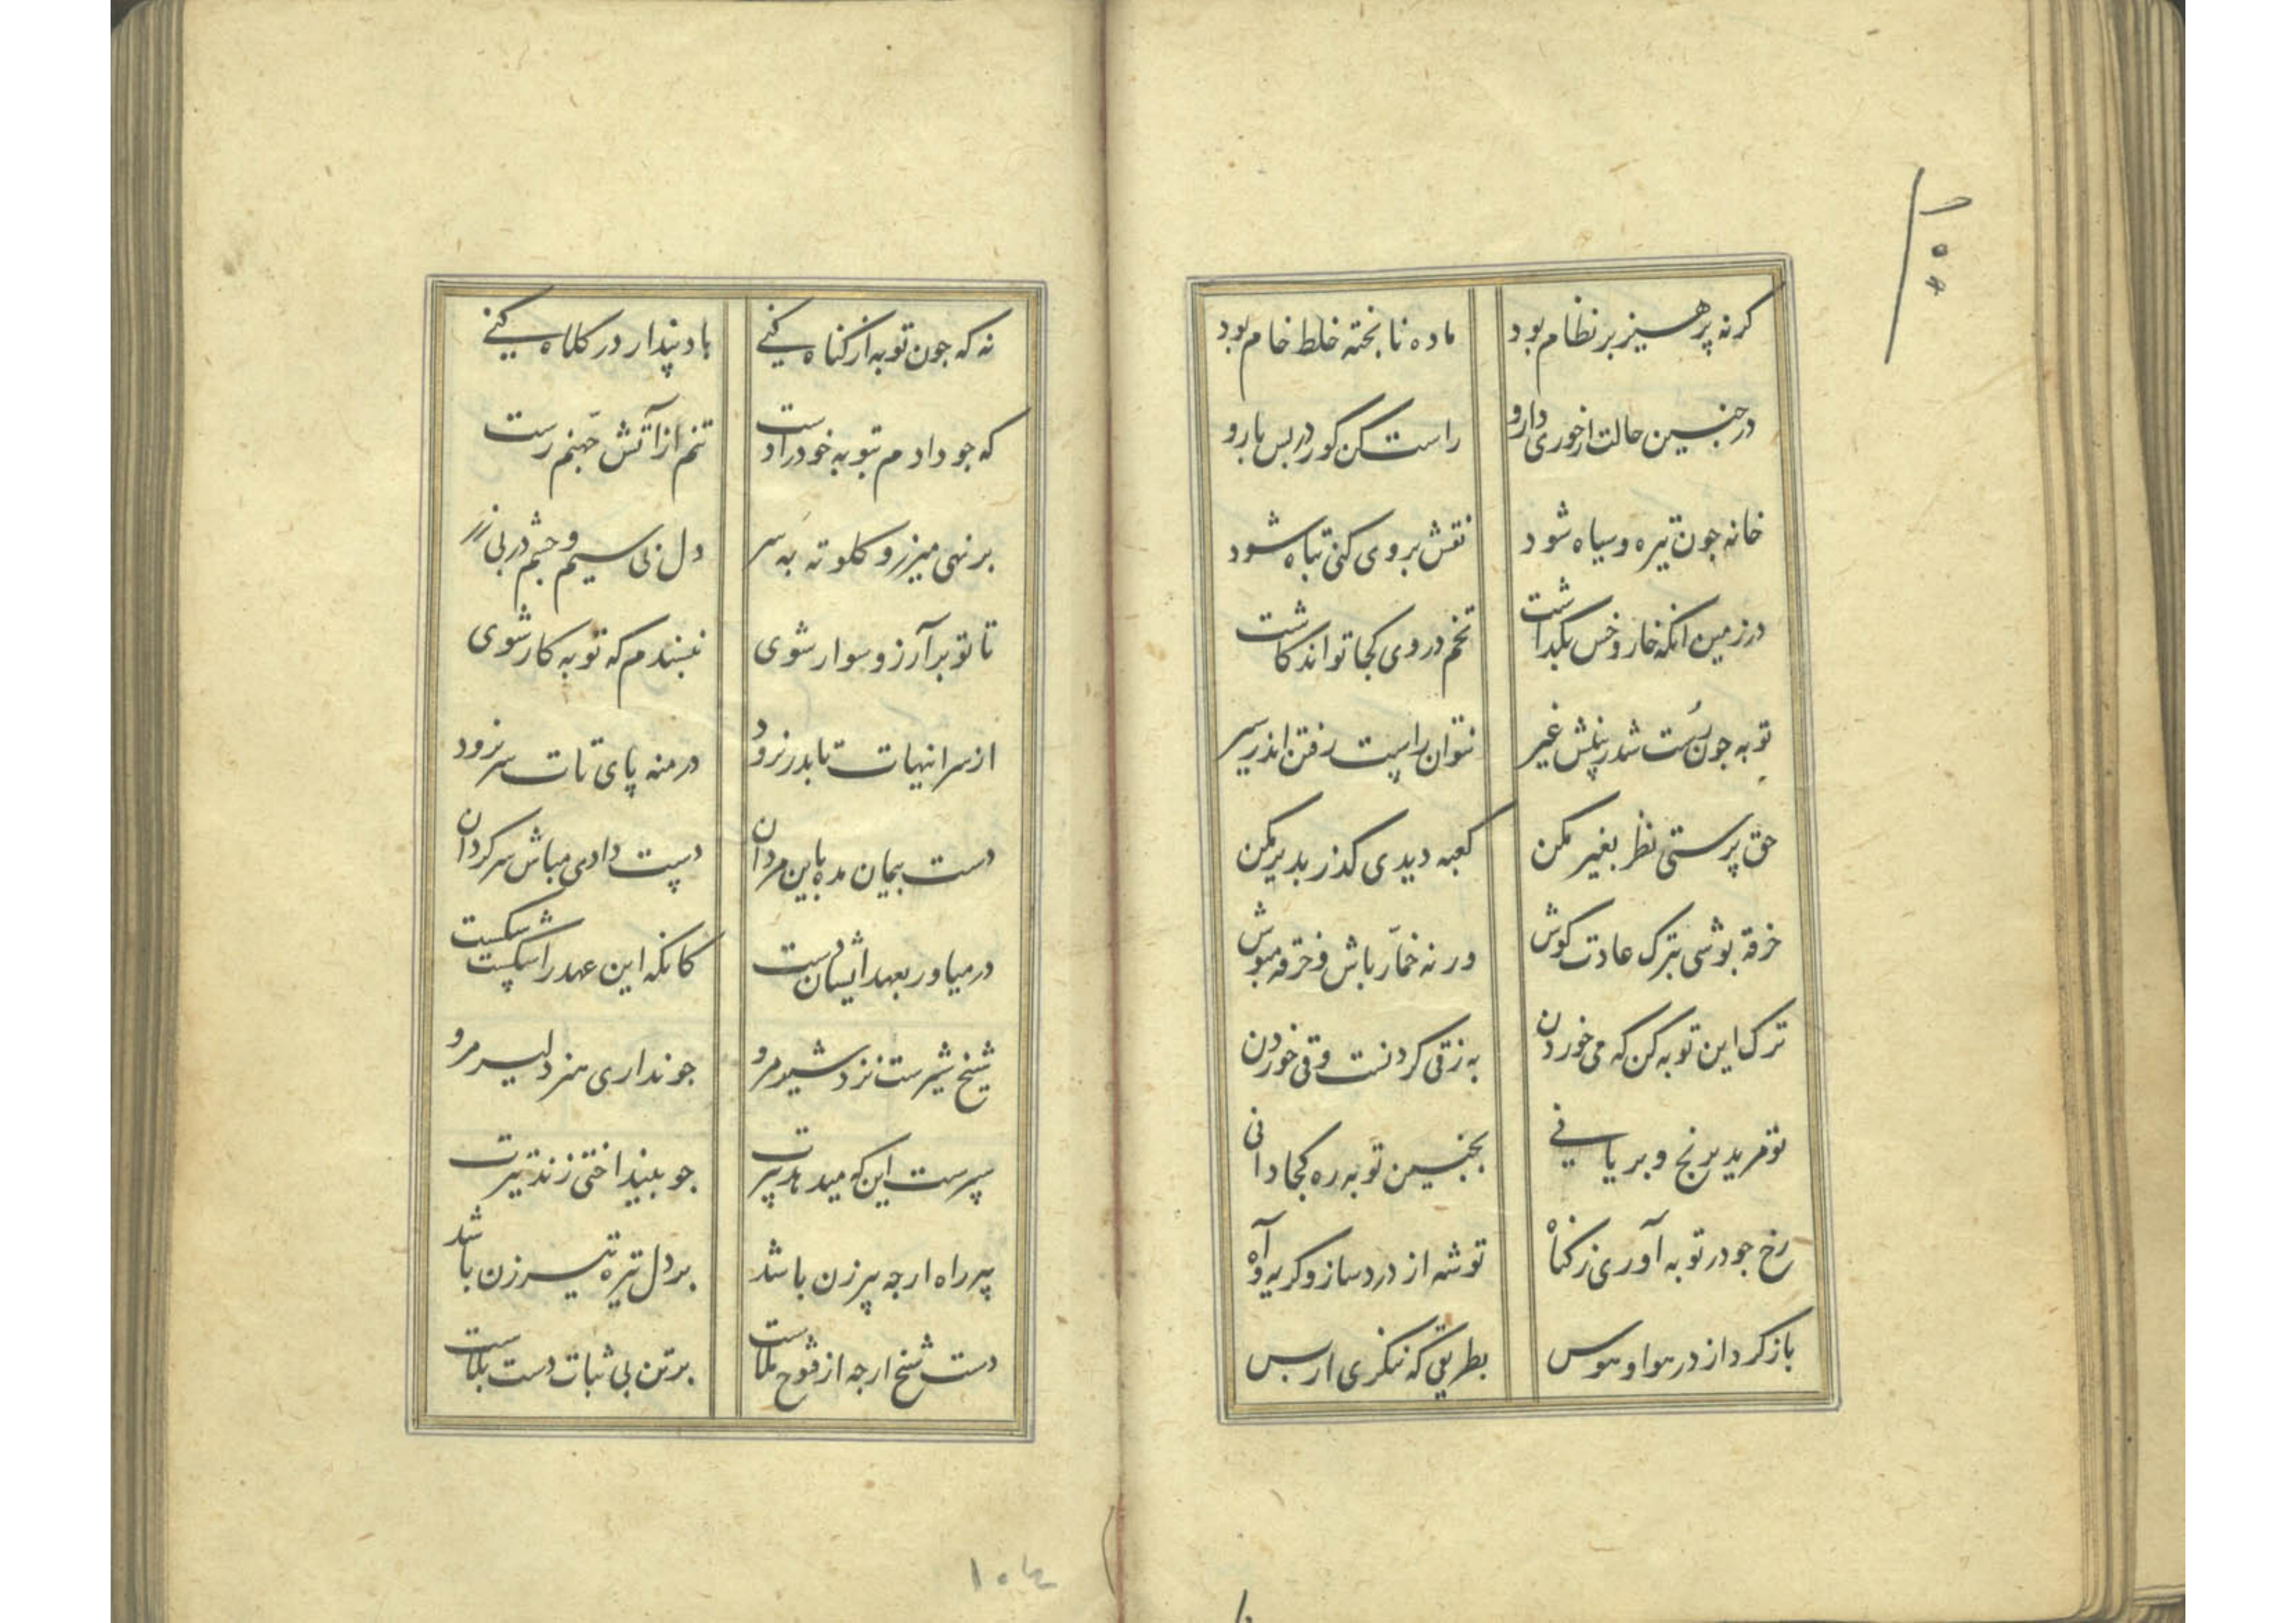 کرنه پرهیز بر نظام بود ماده نابخته خلط خام بود
در جنین حالت ار خوری دارو راست کن کور در بس بارو
خانه جون تیره و سیاه شود نقش بر وی کنی تباه شود
در زمین انکه خار و خس بکداشت تخم در وی کجا تواند کاشت
توبه جون سُست شد ز پنلش غیر نتوان راست رفتن اندر سیر
حق پرستی نظر بغیر مکن کعبه دیدی کذر بدیر مکن
خرقه بوشی بترک عادت کوش ورنه خمّار باش و خرقه مبوش
ترک این توبه کن که می خوردن به ز زقی کردنست و قی خوردن
تو مرید برنج و بریانی بجنین توبه ره کجا دانی
رخ جو در توبه آوری ز کناه توشه از درد ساز و کریه و آه
باز کرد از در هوا و هوس بطریقی که ننکری از بس
نه که جون توبه از کناه کنی باد پندار در کلاه کنی
که جو دادم بتوبه خود را دست تنم از آتش جهنم رست
بر نهی میزر و کلوته به سر دل بی سیم و جشم در بی زر
تا تو بر آرزو سوار شوی نبسندم که توبه کار شوی
از سرانهات تا بدر نرود در منه پای تات سر نرود
دست بیمان مده باین مردان دست دادی مباش سرکردان
در میاور بعهد ایشان دست کانکه این عهد را شکست شکست
شیخ شیرست نزد شیر مرو جو نداری هنر دلیر مرو
سپرست این که میدهد پیرت جو بیندا ختی زند تیرت
پیر راه ارجه پیر زن باشد بر دل تیره تیر زن باشد
دست شیخ ارجه از فتوح ملاست بر تن بی ثبات دست بلاست
۱۰۴